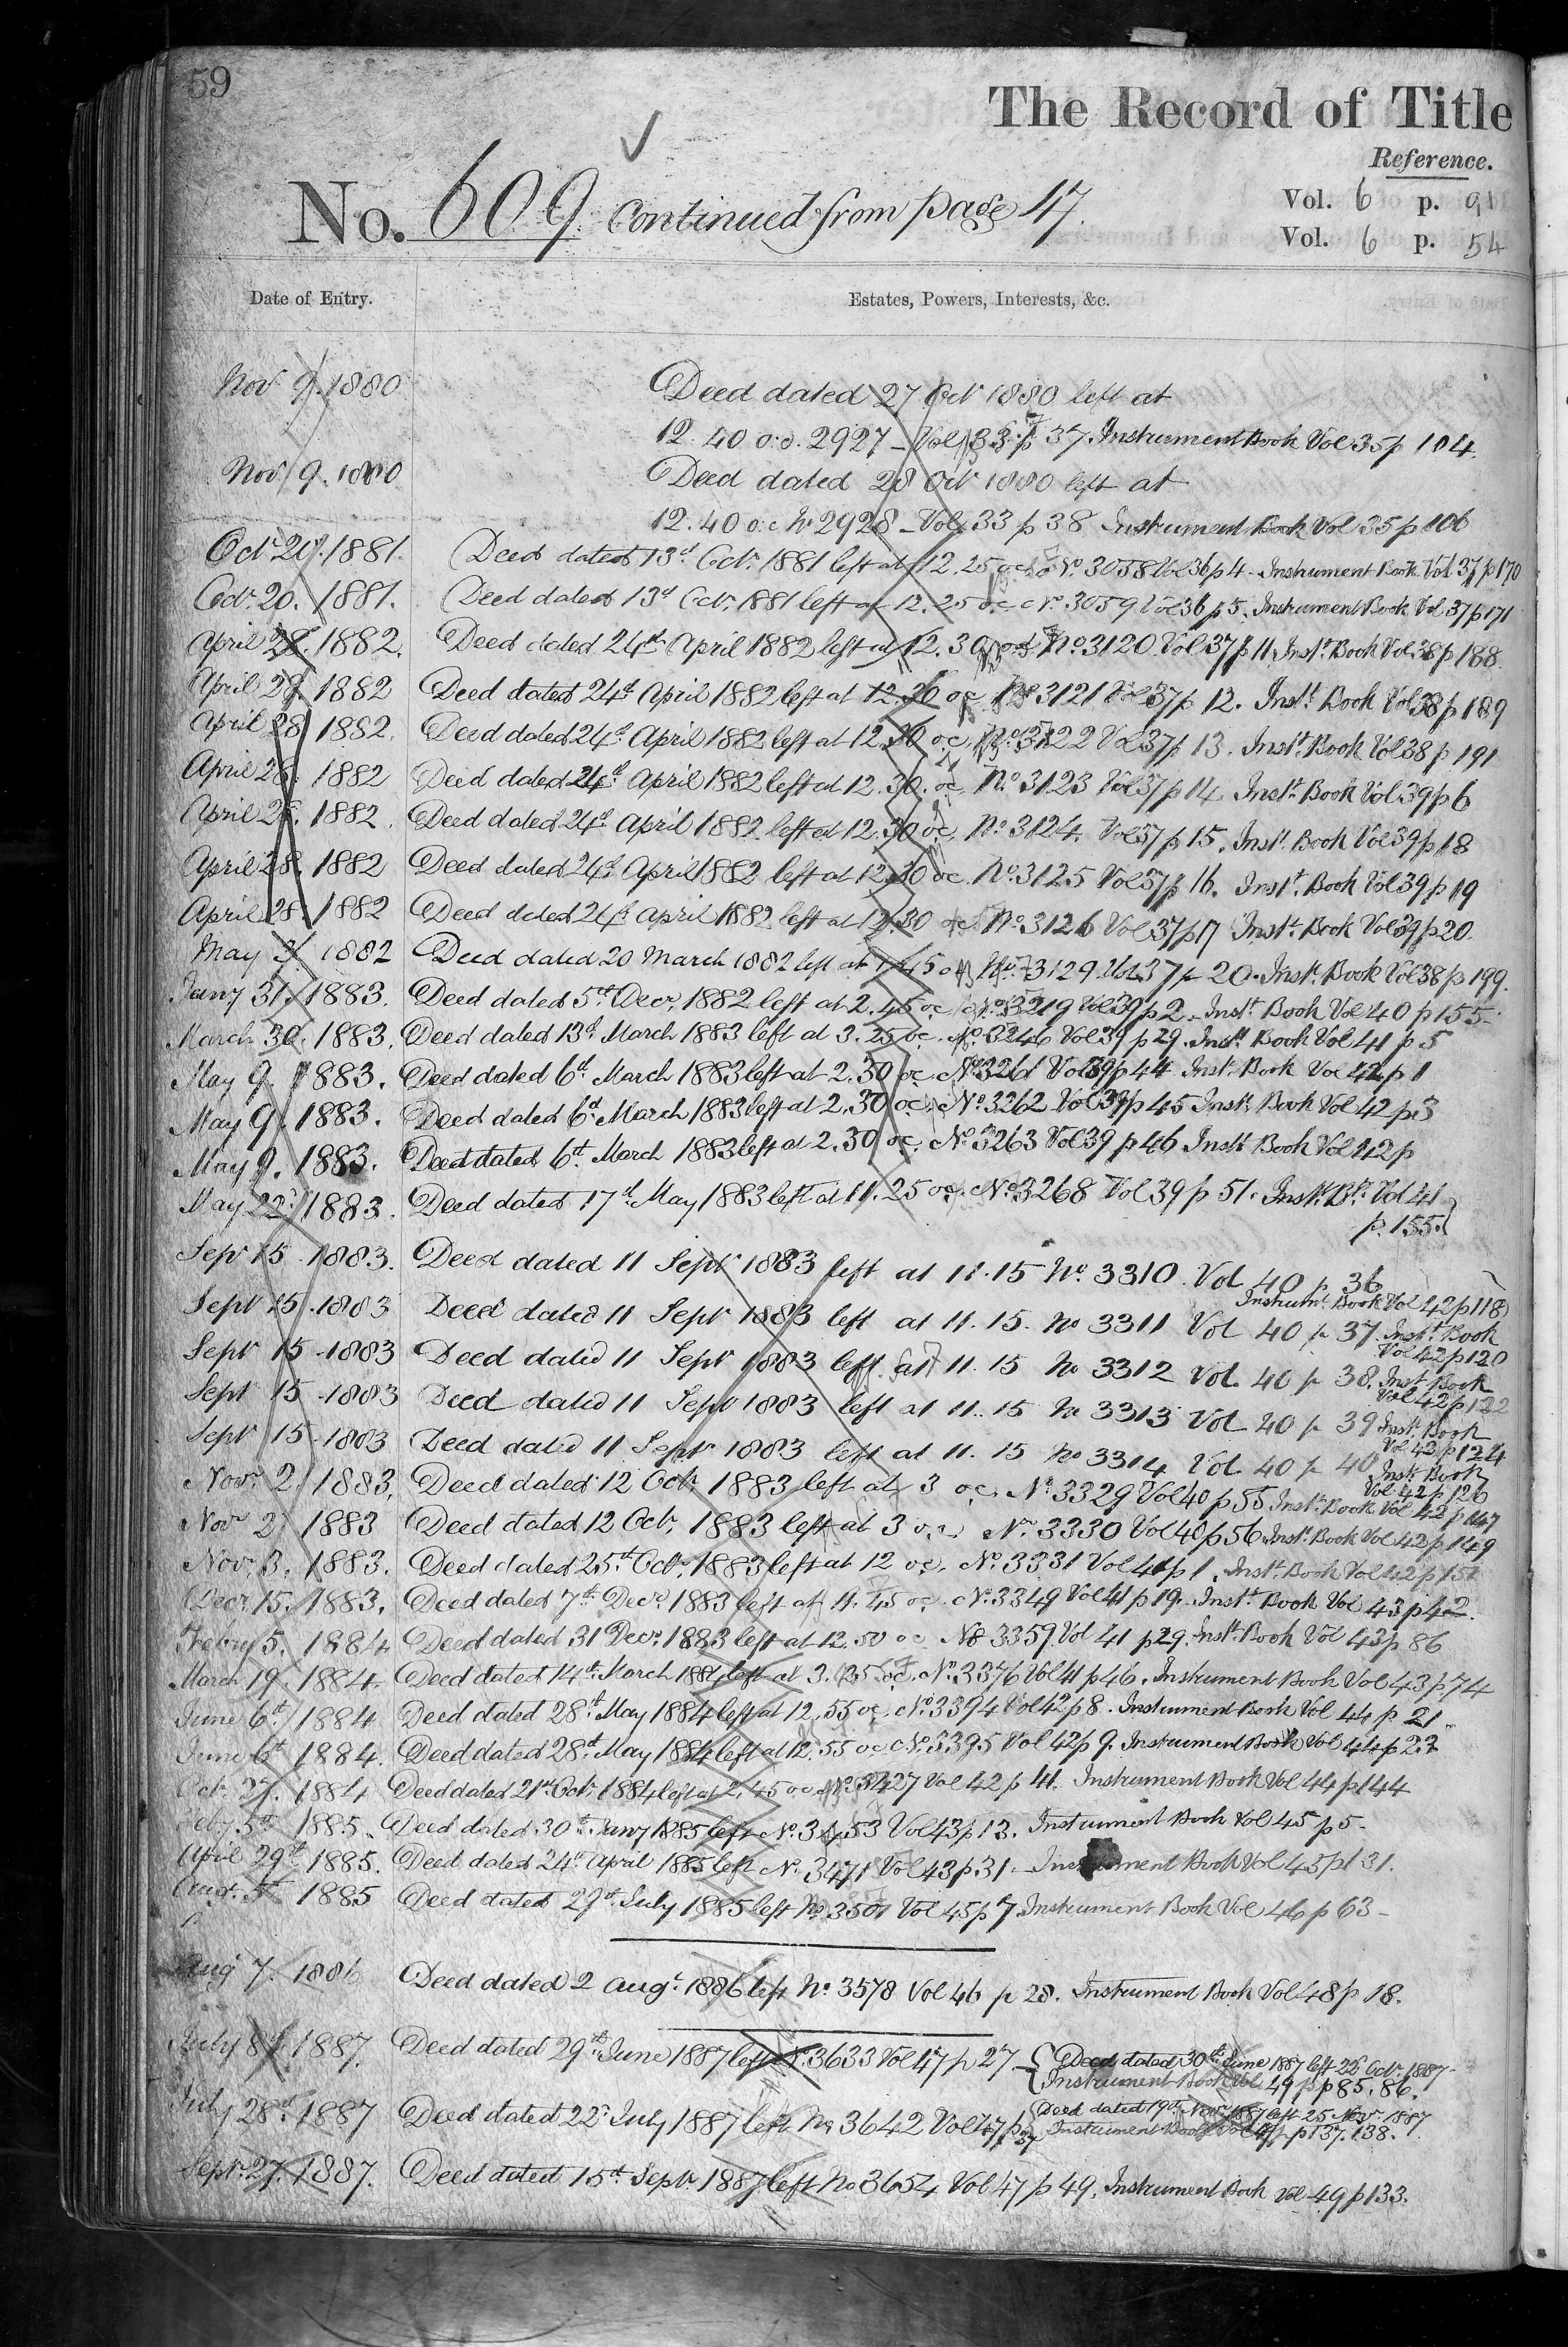 59
The Record of Title
Reference.
Vol. 6 p. 91
No. 609 Continued from page 47.
Vol. 6 p. 54
Date of Entry. Estates, Powers, Interests, &c.
Nov 9. 1880 Deed dated 27 Oct 1880 left at
12.40 o.c. 2927 - Vol 33 p 37. Instrument Book Vol 35 p 104.
Nov 9. 1880 Deed dated 28 Oct 1880 left at
12.40 o.c No 2928 - Vol 33 p 38 Instrument Book Vol 35 p 106
Oct. 20. 1881. Deed dated 13th Oct. 1881 left at 12.25 oc No. 3058 Vol 36 p 4 - Instrument Book Vol. 37 p 170
Oct. 20. 1881. Deed dated 13th Oct. 1881 left at 12.25 oc No. 3059 Vol 36 p 5. Instrument Book Vol 37 p 171
April 28. 1882. Deed dated 24th April 1882 left at 12.30 oc No. 3120 Vol 37 p 11 Inst. Book Vol 38 p 188.
April 28. 1882 Deed dated 24th April 1882 left at 12.30 oc No 3121 Vol 37 p 12. Inst. Book Vol 38 p 189
April 28 1882. Deed dated 24th April 1882 left at 12.30 oc, No. 3122 Vol 37 p 13. Inst. Book Vol 38 p 191
April 28. 1882 Deed dated 24th April 1882 left at 12.30. oc, No. 3123 Vol 37 p 14 Inst. Book Vol 39 p 6
April 28. 1882. Deed dated 24th April 1882 left at 12.30 oc, No. 3124. Vol 37 p 15. Inst. Book Vol 39 p 18
April 28. 1882 Deed dated 24th April 1882 left at 12.30 oc. No. 3125 Vol 37 p 16. Inst. Book Vol 39 p 19
April 28. 1882 Deed dated 24th April 1882 left at 12.30 oc No. 3126 Vol 37 p 17 Inst. Book Vol 39 p 20.
May 3 1882 Deed dated 20 March 1882 left at 1.45 oc No. 3129 Vol 37 p 20. Inst. Book Vol 38 p 199.
Jany 31. 1883. Deed dated 5th Decr. 1882 left at 2.45 oc No. 3219 Vol 39 p 2. Inst. Book Vol 40 p 155.
March 30. 1883. Deed dated 13th March 1883 left at 3.25 oc. No. 3246 Vol 39 p 29. Inst. Book Vol 41 p 5
May 9. 1883. Deed dated 6th March 1883 left at 2.30 oc No. 3261 Vol 39 p 44 Inst. Book Vol 42 p 1
May 9. 1883. Deed dated 6th March 1883 left at 2.30 oc. No. 3262 Vol 39 p 45 Inst. Book Vol 42 p 3
May 9. 1883. Deed dated 6th March 1883 left at 2.30 oc. No. 3263 Vol 39 p 46 Inst. Book Vol 42 p
May 22. 1883. Deed dated 17th May 1883 left at 11.25 oc. No. 3268 Vol 39 p 51. Inst. Bk. Vol 41
p. 155.
Sept 15 1883. Deed dated 11 Sept 1883 left at 11.15 No. 3310 Vol 40 p 36
Instrumt. Book Vol 42 p 118
Sept 15. 1883 Deed dated 11 Sept 1883 left at 11.15. No 3311 Vol 40 p 37. Inst. Book
Vol 42 p 120
Sept 15. 1883 Deed dated 11 Sept 1883 left at 11.15 No 3312 Vol. 40 p 38. Inst. Book
Vol 42 p 122
Sept 15. 1883 Deed dated 11 Sept 1883 left at 11.15 No 3313 Vol 40 p 39 Inst. Book
Vol 42 p 124
Sept 15. 1883 Deed dated 11 Sept 1883 left at 11.15 No 3314 Vol 40 p 40 Inst. Book
Vol. 42 p 126
Novr. 2 1883. Deed dated 12 Oct. 1883 left at 3 oc. No. 3329 Vol 40 p 55 Inst. Book Vol 42 p 147
Novr 2 1883 Deed dated 12 Oct. 1883 left at 3 oc. No. 3330 Vol 40 p 56 Inst. Book Vol 42 p 149
Novr. 3. 1883. Deed dated 25th Oct. 1883 left at 12 oc, No. 3331 Vol 41 p 1. Inst. Book Vol 42 p 151
Decr. 15. 1883. Deed dated 7th Decr. 1883 left at 11.45 oc. No. 3349 Vol 41 p 19. Inst. Book Vol 43 p 42.
Febry 5. 1884 Deed dated 31 Decr. 1883 left at 12.50 oc No 3359 Vol 41 p 29. Inst. Book Vol 43 p 86
March 19. 1884. Deed dated 14th March 1884 left at 3.35 oc, No. 3376 Vol 41 p 46. Instrument Book Vol 43 p. 74
June 6th 1884 Deed dated 28th May 1884 left at 12.55 oc, No. 3394 Vol 42 p 8. Instrument Book Vol 44 p 21.
June 6th 1884. Deed dated 28th May 1884 left at 12.55 oc No. 3395 Vol 42 p 9. Instrument Book Vol 44 p 23
Oct. 27. 1884 Deed dated 21st Oct. 1884 left at 2.45 oc No. 3427 Vol 42 p 41. Instrument Book Vol 44 p 144
Feby 5th 1885. Deed dated 30th Jany 1885 left No. 3453 Vol 43 p 13. Instrument Book Vol 45 p 5-
April 29th 1885. Deed dated 24th April 1885 left No. 3471 Vol 43 p 31 - Instrument Book Vol 45 p 131.
Augt. 5th 1885 Deed dated 29th July 1885 left No 3501 Vol 45 p 7 Instrument Book Vol 46 p 63 -
Aug 7. 1886 Deed dated 2 Augt. 1886 left No. 3578 Vol 46 p 28. Instrument Book Vol 48 p 18.
July 8th 1887. Deed dated 29th June 1887 left No. 3633 Vol 47 p 27 - { Deed dated 30th June 1887 left 22 Octr. 1887 -
Instrument Book Vol 49 p p 85. 86.
July 28th 1887 Deed dated 22 July 1887 left No 3642 Vol 47 p 37 { Deed dated 19th Novr. 1887 left 25 Novr. 1887
Instrument Book Vol 49 p p 137. 138.
Sept. 27. 1887. Deed dated 15th Sept. 1887 left No 3654 Vol 47 p 49. Instrument Book Vol 49 p 133.